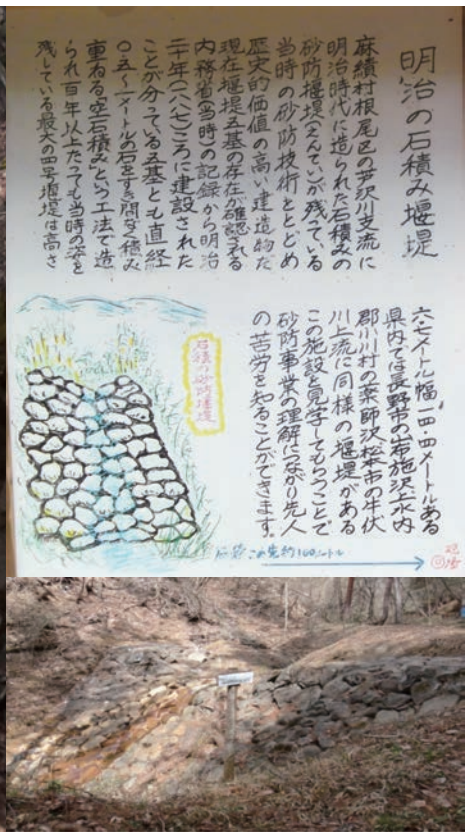 明治の石積み堰堤
麻績村根尾区の芦沢川支流に
明治時代に造られた石積みの
砂防堰堤(えんてい)が残っている
当時の砂防技術をとどめ
歴史的価値の高い建造物だ
現在堰堤五基の存在が確認される
内務省(当時)の記録から明治
二十年(一八八七)ころに建設された
ことが分っている五基とも直経
〇・五~一メートルの石をすき間なく積み
重ねる"空石積み"という工法で造
られ百年以上たっても当時の姿を
残している最大の四号堰堤は高さ
六・七メートル幅一四・四メートルある
県内では長野市の岩施沢上水内
郡小川村の薬師沢松本市の牛伏
川上流に同様の堰堤がある
この施設を見学してもらうことで
砂防事業の理解につながり先人
の苦労を知ることができます。
石積の砂防堰堤
この先約100メートル
現場